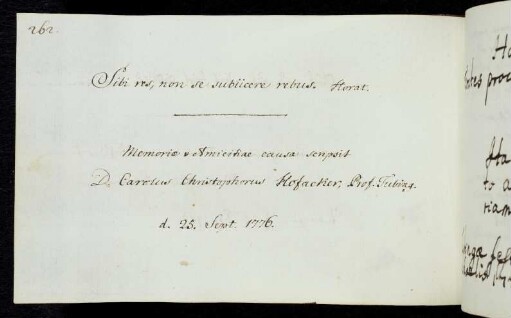 262.
Sibi res, non se subiicere rebus. Horat.
Memoriae & Amicitiae causa scripsit
D. Carolus Christophorus Hofacker, Prof. Tubing.
d. 25. Sept. 1776.